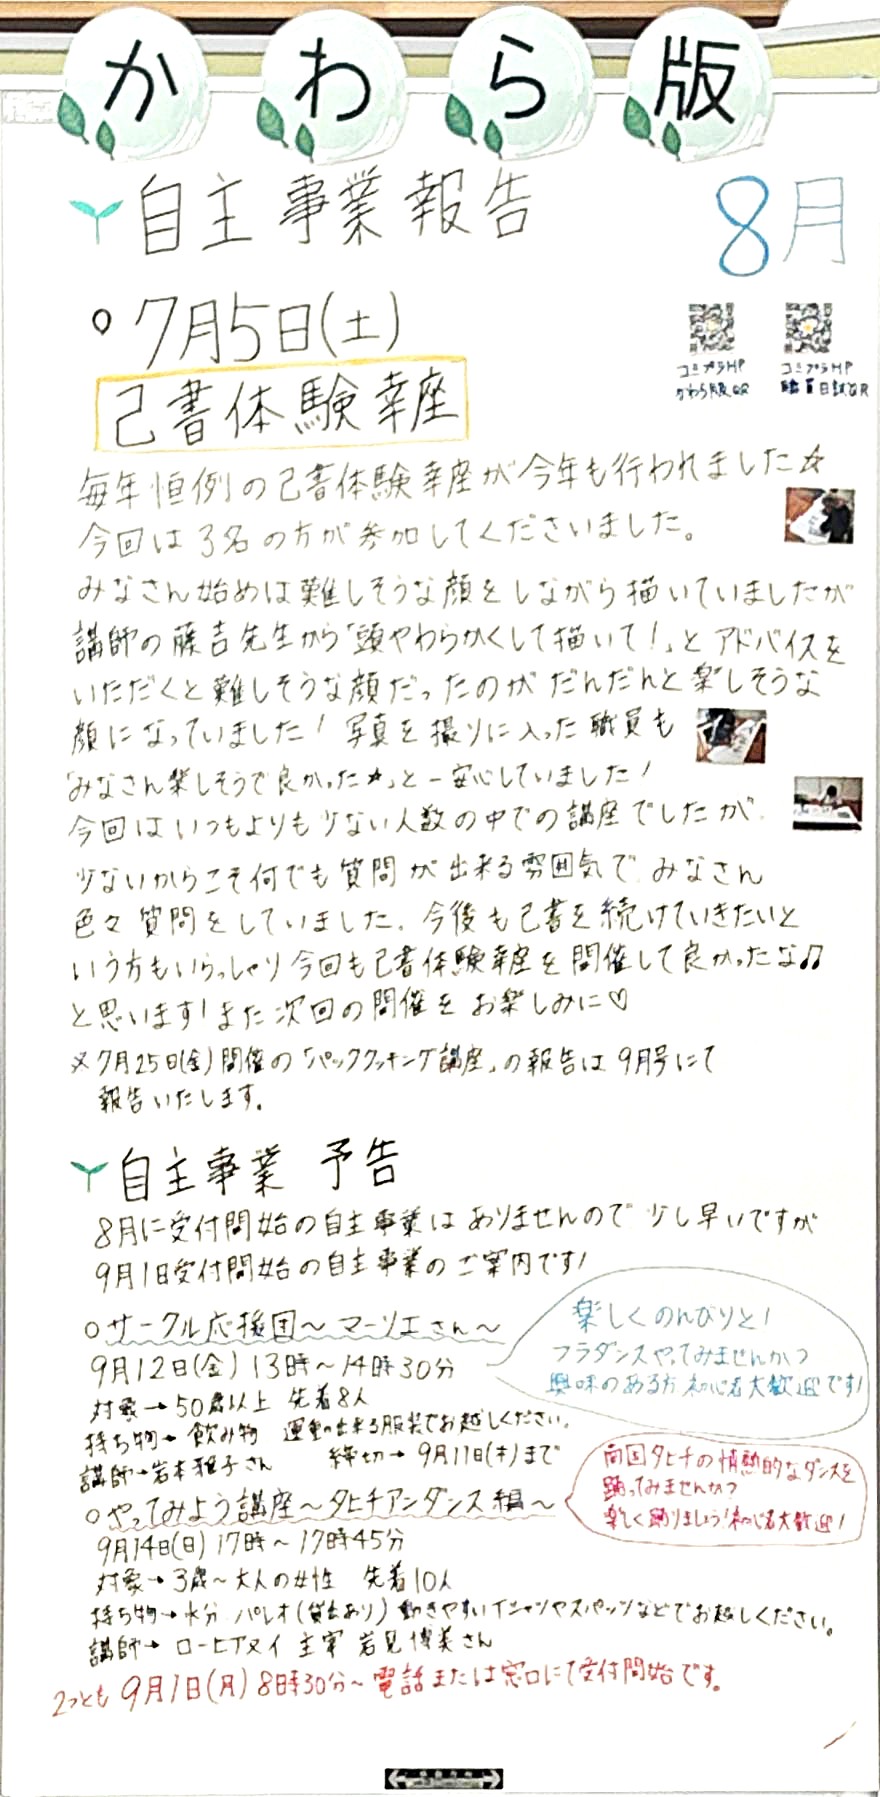 かわら版
自主事業報告
8月
7月5日(土)
己書体験講座
コミプラHP
かわら版QR
コミプラHP
職員日誌QR
毎年恒例の己書体験講座が今年も行われました☆
今回は3名の方が参加してくださいました。
みなさん始めは難しそうな顔をしながら描いていましたが
講師の藤吉先生から「頭やわらかくして描いて!」とアドバイスを
いただくと難しそうな顔だったのがだんだんと楽しそうな
顔になっていました!写真を撮りに入った職員も
「みなさん楽しそうで良かった★」と一安心していました!
今回はいつもよりも少ない人数の中での講座でしたが、
少ないからこそ何でも質問が出来る雰囲気で、みなさん
色々質問をしていました。今後も己書を続けていきたいと
いう方もいらっしゃり今回も己書体験講座を開催して良かったな♫
と思います!また次回の開催をお楽しみに♡
※7月25日(金)開催の「パッククッキング講座」の報告は9月号にて
報告いたします。
自主事業 予告
8月に受付開始の自主事業はありませんので、少し早いですが
9月1日受付開始の自主事業のご案内です!
○サークル応援団〜マーソエさん〜
9月12日(金)13時〜14時30分
対象→50歳以上 先着8人
持ち物→飲み物 運動の出来る服装でお越しください。
講師→岩本雅子さん 締切→9月11日(木)まで
楽しくのんびりと!
フラダンスやってみませんか?
興味のある方、初心者大歓迎です!
○やってみよう講座〜タヒチアンダンス編〜
9月14日(日)17時〜17時45分
対象→3歳〜大人の女性 先着10人
持ち物→水分、パレオ(貸出あり)動きやすいTシャツやスパッツなどでお越しください。
講師→ローヒアヌイ 主宰 岩見博美さん
南国タヒチの情熱的なダンスを
踊ってみませんか?
楽しく踊りましょう!初心者大歓迎!
2つとも9月1日(月)8時30分〜電話または窓口にて受付開始です。